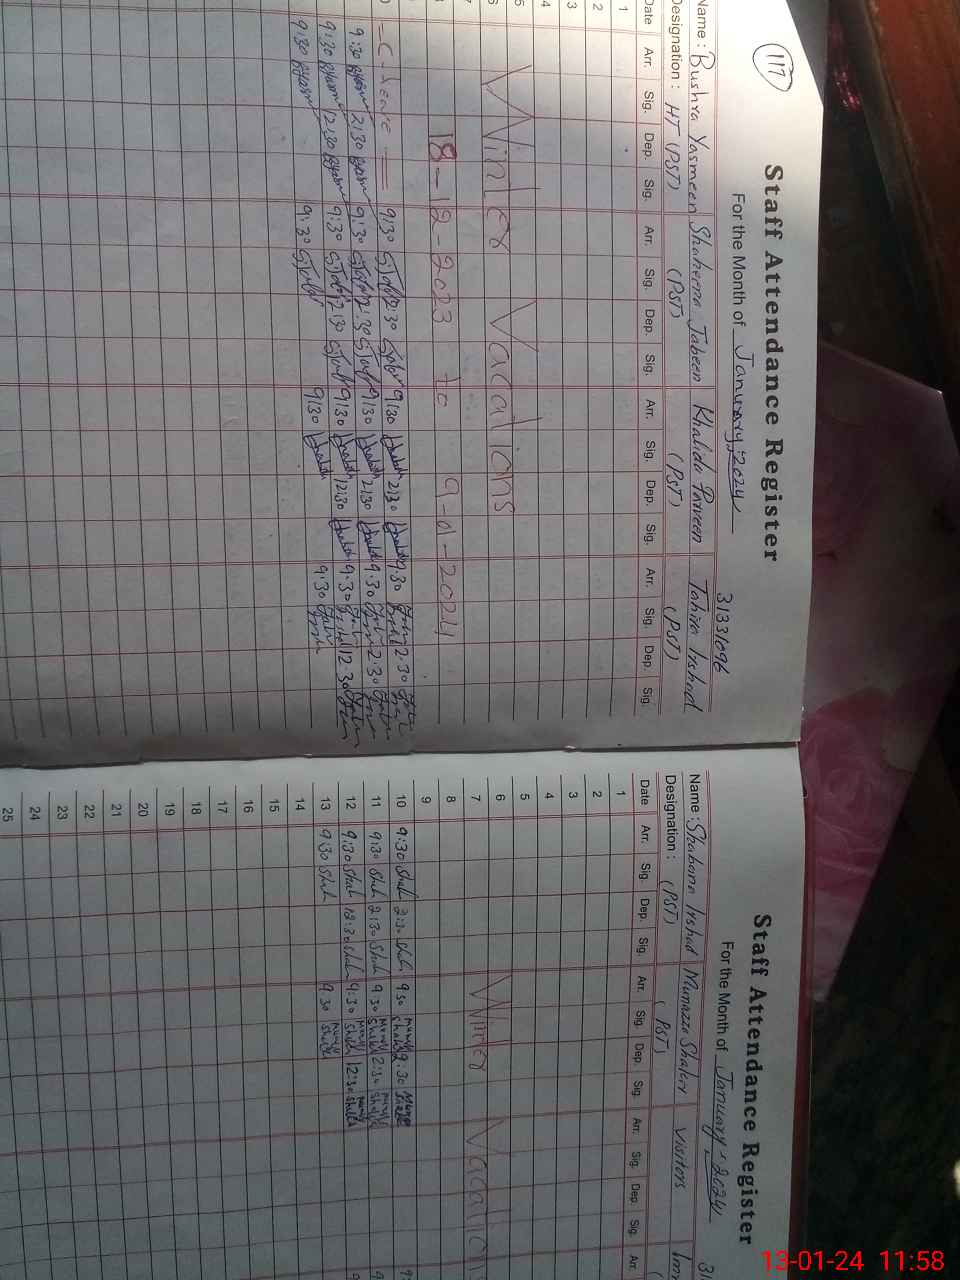 117
Staff Attendance Register
For the Month of January, 2024
31331096
Name : Bushra Yasmeen Shaheena Jabeen Khalida Parveen Tahira Irshad
Designation : HT (PST) (PST) (PST) (PST)
Date Arr. Sig. Dep. Sig. Arr. Sig. Dep. Sig. Arr. Sig. Dep. Sig. Arr. Sig. Dep. Sig.
1
2
3
4
5
6 Winter Vacations
7
8 18-12-2023 to 9-01-2024
C-Leave 9:30 2:30 9:30 2:30 9:30 2:30
9:30 2:30 9:30 2:30 9:30 2:30 9:30 2:30
9:30 12:30 9:30 12:30 9:30 12:30 9:30 12:30
9:30 9:30 9:30 9:30
Staff Attendance Register
For the Month of January, 2024
31
Name : Shabana Irshad Munazza Shaheen Visitors
Designation : (PST) (PST)
Date Arr. Sig. Dep. Sig. Arr. Sig. Dep. Sig. Arr. Sig. Dep. Sig. Arr.
1
2
3
4
5
6
7 Winter Vacations
8
9
10 9:30 Shab 2:30 Shab 9:30 2:30
11 9:30 Shab 2:30 Shab 9:30 2:30
12 9:30 Shab 12:30 Shab 9:30 12:30
13 9:30 Shab 9:30
14
15
16
17
18
19
20
21
22
23
24
25
13-01-24 11:58